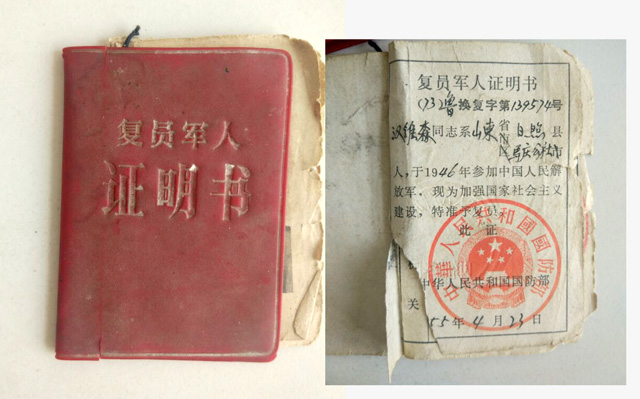 复员军人
证明书
复员军人证明书
(73)鲁换复字第139574号
汉维森同志系山东省日照县
市
人,于1946年参加中国人民解
放军,现为加强国家社会主义
建设,特准予复员。
此证
中华人民共和国国防部
中华人民共和国国防部
关
55年4月23日